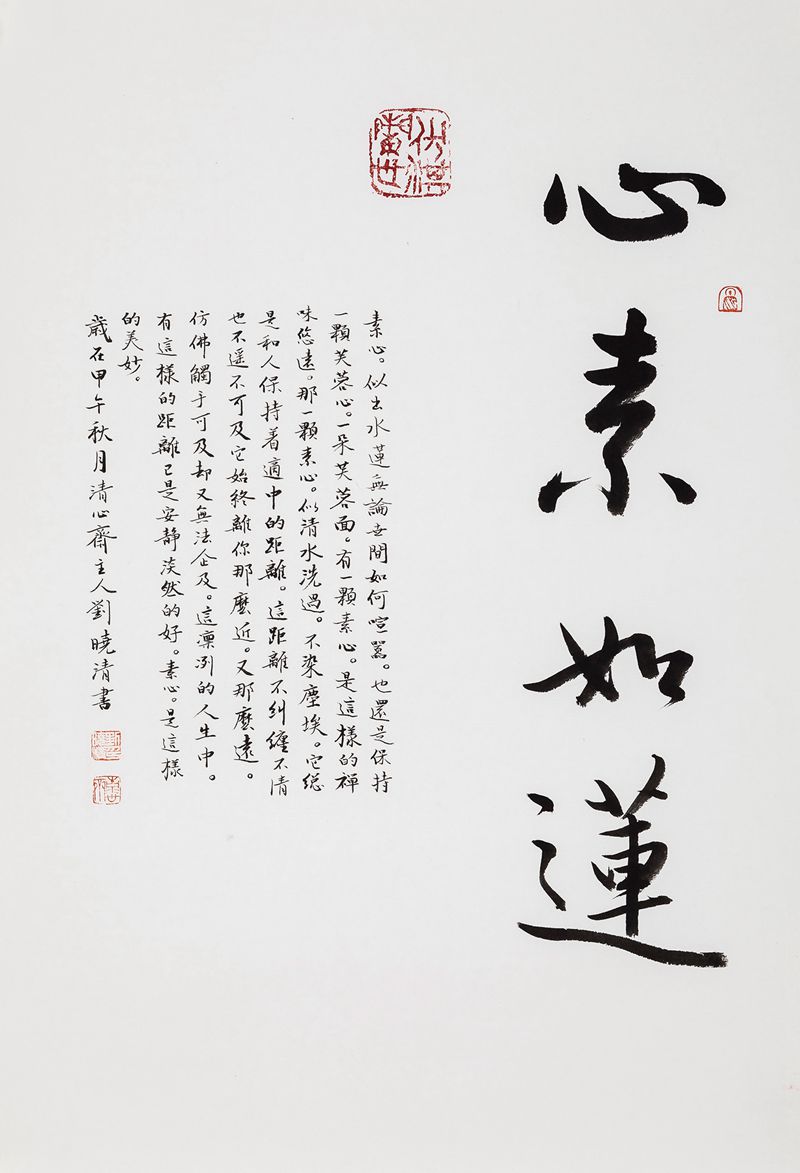 心素如蓮
素心。似出水蓮無論世間如何喧囂。也還是保持
一顆芙蓉心。一朵芙蓉面。有一顆素心。是這樣的禅
味悠遠。那一顆素心。似清水洗過。不染塵埃。它総
是和人保持着適中的距離。這距離不纠纏不清
也不遥不可及它始終離你那麼近。又那麼遠。
仿佛觸手可及却又無法企及。這凜冽的人生中。
有這樣的距離已是安静淡然的好。素心。是這樣
的美妙。
歳在甲午秋月清心齋主人劉曉清書